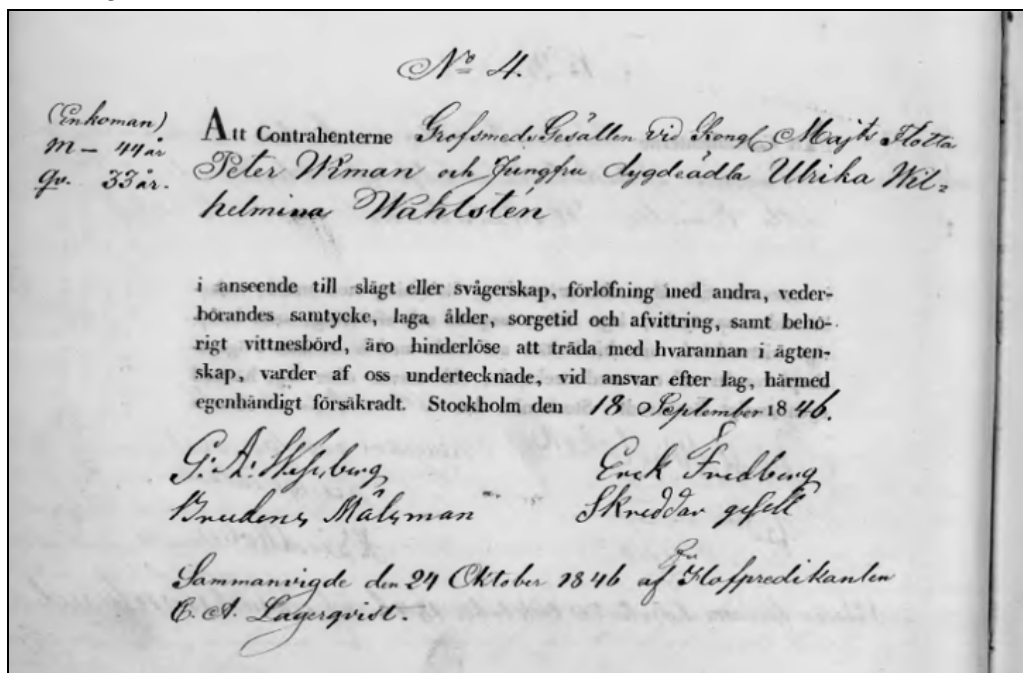 No 4.
(Enkoman)
M – 44 år
Qv. 33 år.
Att Contrahenterne Grofsmeds Gesällen vid Kongl. Majts Flotta
Peter Wiman och Jungfru dygdeädla Ulrika Wil-
helmina Wahlsten
i anseende till slägt eller svågerskap, förlofning med andra, veder-
börandes samtycke, laga ålder, sorgetid och afvittring, samt behö-
rigt vittnesbörd, äro hinderlöse att träda med hvarannan i ägten-
skap, varder af oss undertecknade, vid ansvar efter lag, härmed
egenhändigt försäkradt. Stockholm den 18 September 1846.
G: A: Erick Fredberg
Brudens Målsman Skreddar gesell
Sammanvigde den 24 Oktober 1846 af Hofpredikanten
C. A. Lagerqvist.